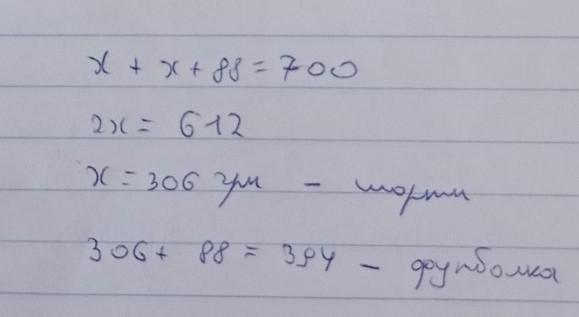 x + x + 88 = 700
2x = 612
x = 306 грн - шорти
306 + 88 = 394 - футболка